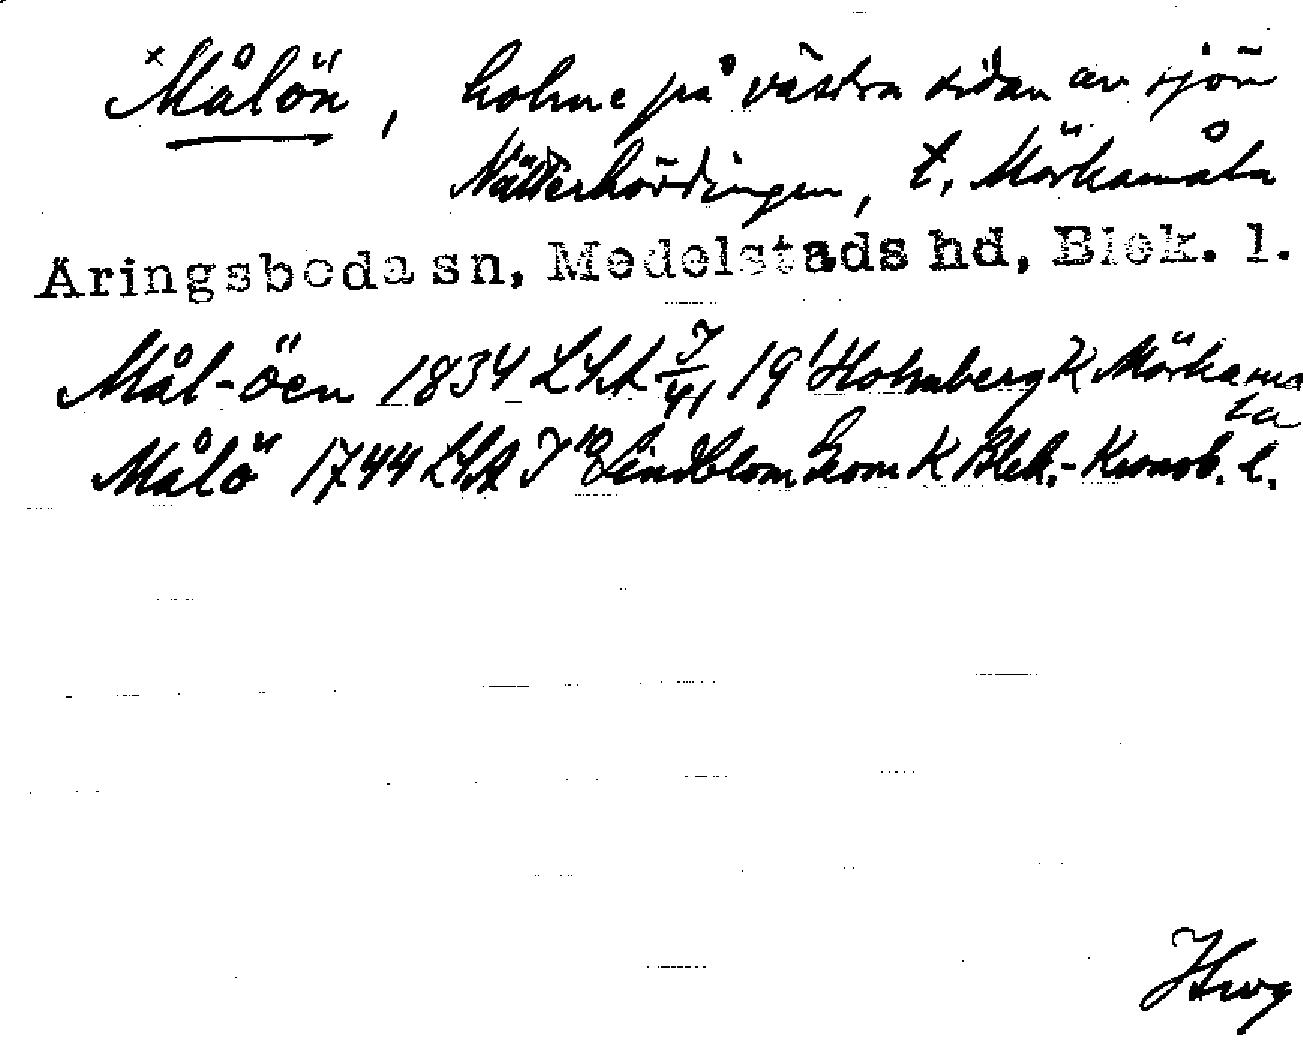 ×Målön, holme på västra sidan av sjön
Nätterhövdingen, t. Mörkamåla
Äringsboda sn, Medelstads hd, Blek. l.
Mål-öen 1834 Lht J/41 19 Holmberg K Mörkamå
la
Målö 1744 Lht J Lindblom Geom K Blek.-Kronob. l.